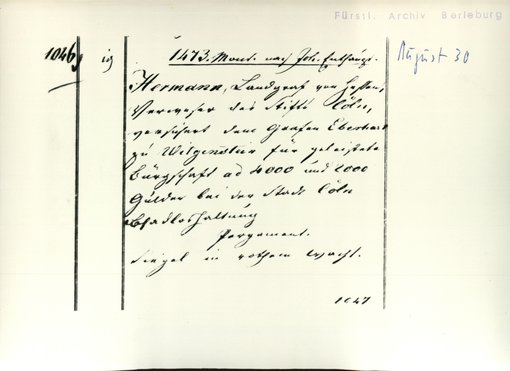 Fürstl. Archiv Berleburg
August 30
1046
1473. Mont. nach Joh. Enthaupt.
Hermann, Landgraf von Hessen,
Verweser des Stifts Cöln,
versichert dem Grafen Eberhart
zu Witgenstein für geleistete
Bürgschaft ad 4000 und 2000
Gulden bei der Stadt Cöln
Schadloshaltung
Pergament.
Siegel in rothem Wachs.
1047